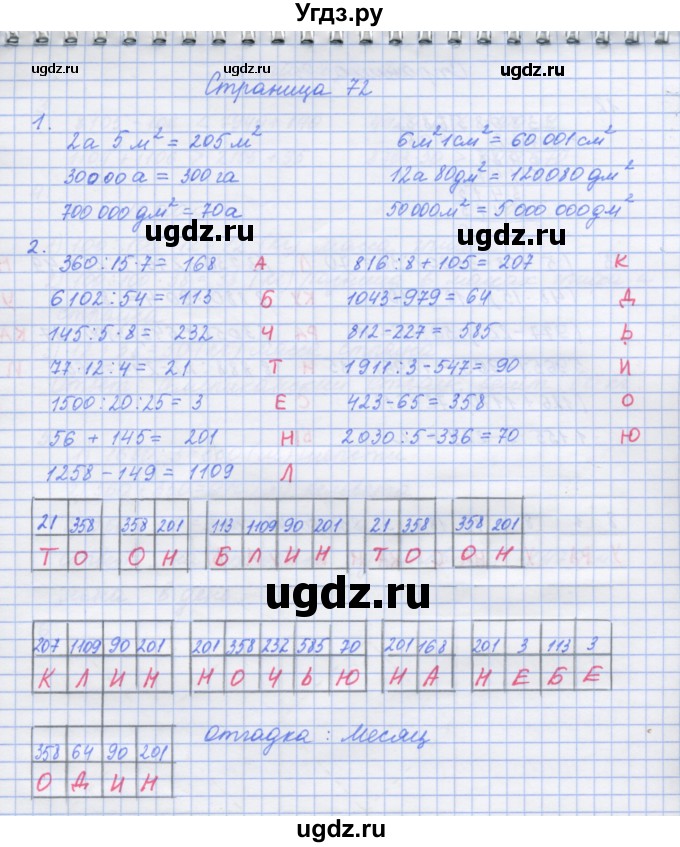 Угдз.ру
ugdz.ru ugdz.ru ugdz.ru
Страница 72
1.
2а 5 м² = 205 м² 6 м² 1 см² = 60 001 см²
30000 а = 300 га 12 а 80 дм² = 120080 дм²
700 000 дм² = 70 а 50 000 м² = 5 000 000 дм²
ugdz.ru
2.
360:15·7= 168 А 816:8+105= 207 К
6102:54= 113 Б 1043-979= 64 Д
145:5·8= 232 Ч 812-227= 585 Ь
ugdz.ru ugdz.ru
77·12:4= 21 Т 1911:3-547= 90 И
1500:20:25= 3 Е 423-65= 358 О
56 + 145= 201 Н 2030:5-336=70 Ю
1258-149= 1109 Л
ugdz.ru ugdz.ru
21 358 358 201 113 1109 90 201 21 358 358 201
Т О О Н Б Л И Н Т О О Н
ugdz.ru
207 1109 90 201 201 358 232 585 70 201 168 201 3 113 3
ugdz.ru ugdz.ru
К Л И Н Н О Ч Ь Ю Н А Н Е Б Е
отгадка: Месяц
358 64 90 201
ugdz.ru ugdz.ru
О Д И Н
ugdz.ru